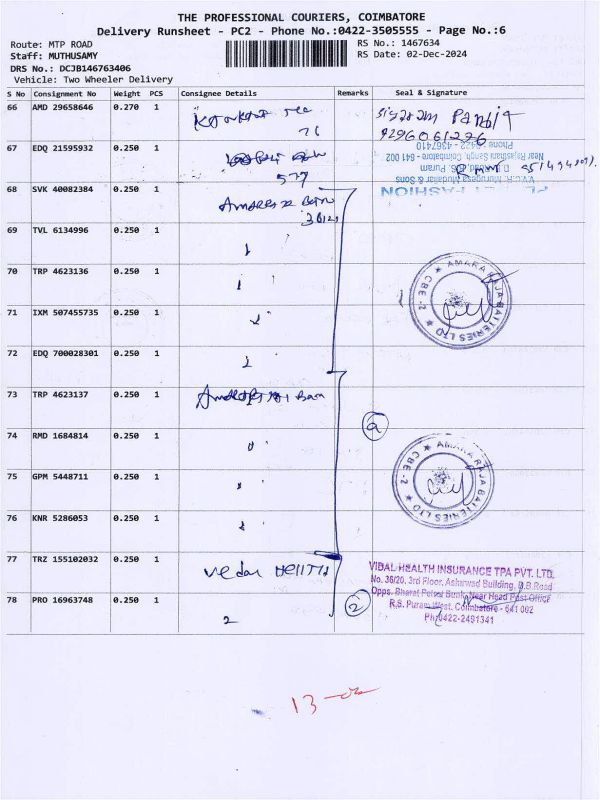 THE PROFESSIONAL COURIERS, COIMBATORE
Delivery Runsheet - PC2 - Phone No.:0422-3505555 - Page No.:6
Route: MTP ROAD
RS No.: 1467634
Staff: MUTHUSAMY
RS Date: 02-Dec-2024
DRS No.: DCJB146763406
Vehicle: Two Wheeler Delivery
S No Consignment No Weight PCS Consignee Details Remarks Seal & Signature
66 AMD 29658646 0.270 1
76
9296061226
67 EDQ 21595932 0.250 1
577
Phone : 0422 - 4367410
Near Rajasthani Sangh, Coimbatore - 641 002
V.V.C.R. Murugesa Mudaliar & Sons
FASHION
68 SVK 40082384 0.250 1
69 TVL 6134996 0.250 1
70 TRP 4623136 0.250 1
AMARA RAJA BATTERIES LTD
CBE -2
71 IXM 507455735 0.250 1
72 EDQ 700028301 0.250 1
73 TRP 4623137 0.250 1
9
74 RMD 1684814 0.250 1
AMARA RAJA BATTERIES LTD
CBE -2
75 GPM 5448711 0.250 1
76 KNR 5286053 0.250 1
77 TRZ 155102032 0.250 1
VIDAL HEALTH INSURANCE TPA PVT. LTD.
No. 36/20, 3rd Floor, Asharwad Building, D.B.Road
Opps. Bharat Petrol Bunk, Near Head Post Office
R.S. Puram West, Coimbatore - 641 002
Ph:0422-2491341
78 PRO 16963748 0.250 1
2
2
13